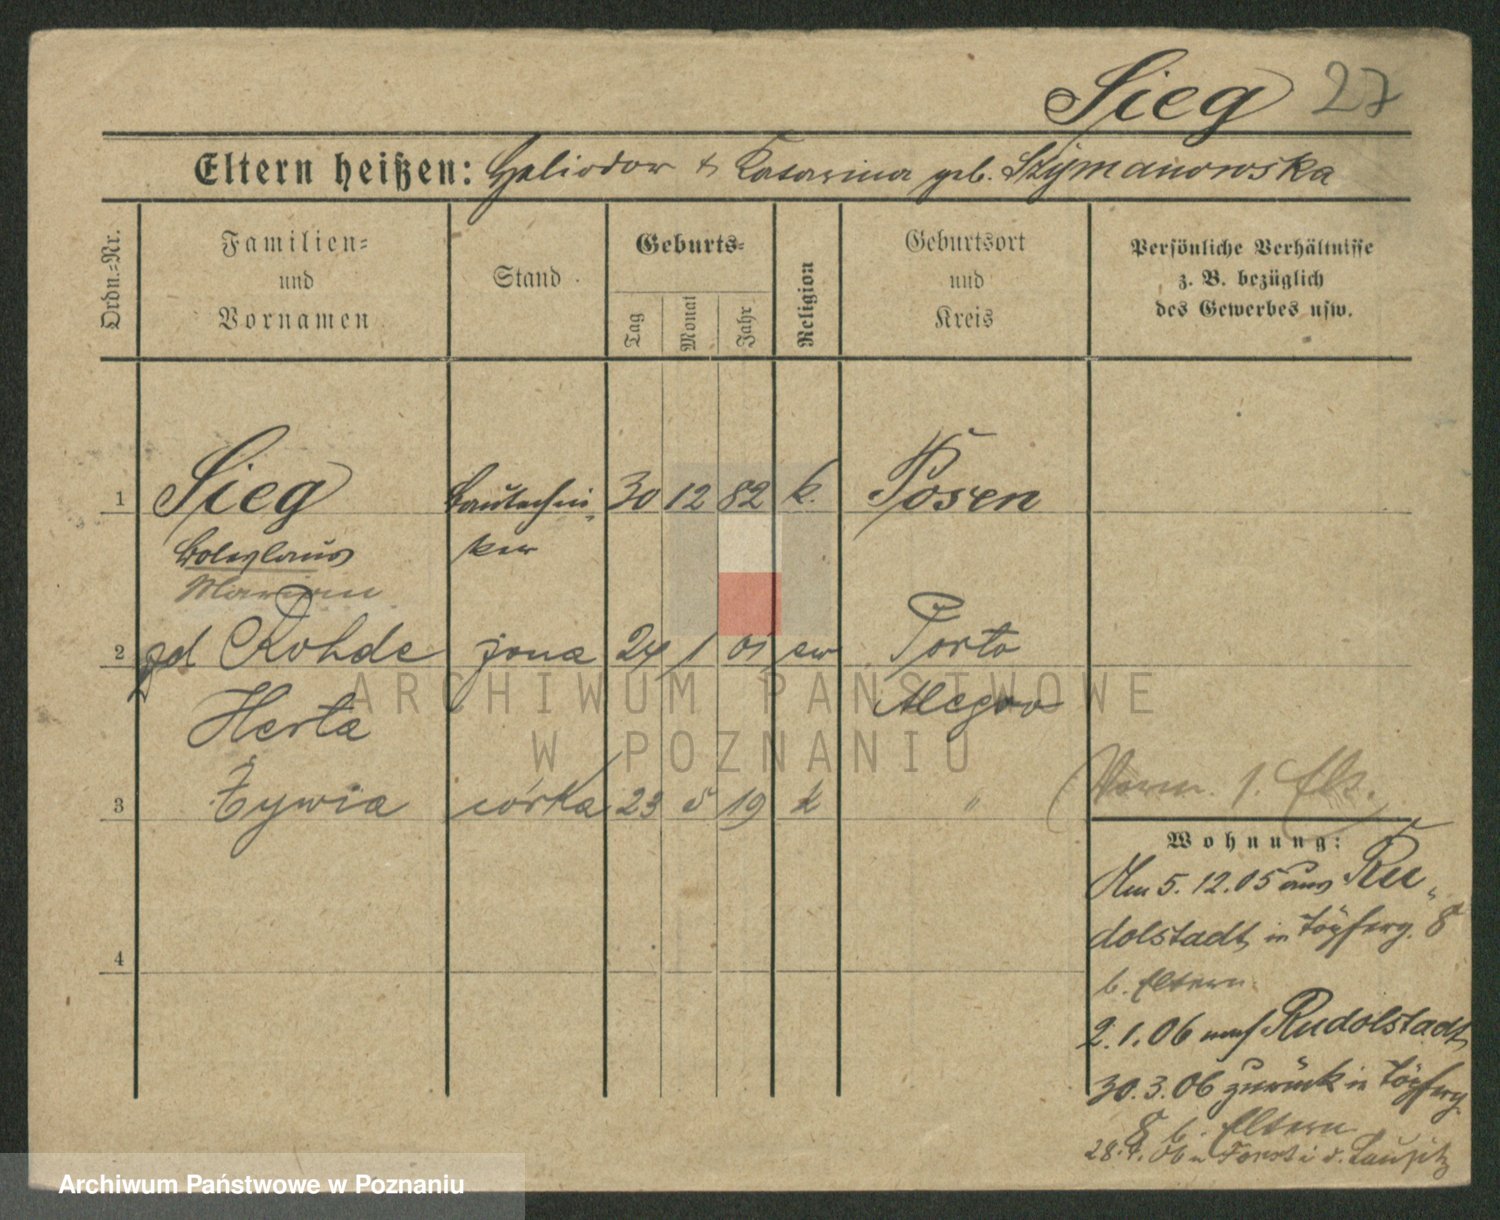 Sieg 27
Eltern heißen: Heliodor & Katarina geb. Szymanowska
Ordn.-Nr.
Familien-
und
Vornamen
Stand
Geburts-
Tag
Monat
Jahr
Religion
Geburtsort
und
Kreis
Persönliche Verhältnisse
z. B. bezüglich
des Gewerbes usw.
1 Sieg Bautechni- 30 12 82 k. Posen
Boleslaus ker
Marian
2 zd Rohde żona 24 1 01 ew Porto
Herta Alegro
3 Żywia córka 23 5 19 k "
Verm. 1. Els.
4
Wohnung:
Am 5.12.05 aus Ru-
dolstadt, in Töpferg. 8
b. Eltern
2.1.06 nach Rudolstadt,
30.3.06 zurück in Töpferg.
8 b. Eltern
28.4.06 n Forst i. d. Lausitz
ARCHIWUM PAŃSTWOWE
W POZNANIU
Archiwum Państwowe w Poznaniu